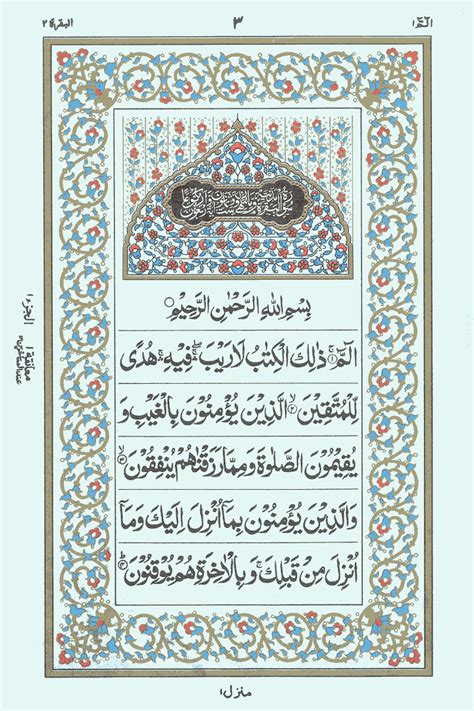 الٓمّٓ ١ ٣ البقرة ٢
سُوْرَةُ الْبَقَرَةِ
بِسْمِ اللّٰهِ الرَّحْمٰنِ الرَّحِيْمِ ○
الٓمّٓ ۚ﴿۱﴾ ذٰلِكَ الْكِتٰبُ لَا رَيْبَ ۛۖۚ فِيْهِ ۛۚ هُدًى
لِّلْمُتَّقِيْنَ ۙ﴿۲﴾ الَّذِيْنَ يُؤْمِنُوْنَ بِالْغَيْبِ وَ
يُقِيْمُوْنَ الصَّلٰوةَ وَمِمَّا رَزَقْنٰهُمْ يُنْفِقُوْنَ ۙ﴿۳﴾
وَالَّذِيْنَ يُؤْمِنُوْنَ بِمَاۤ اُنْزِلَ اِلَيْكَ وَمَاۤ
اُنْزِلَ مِنْ قَبْلِكَ ۚ وَبِالْاٰخِرَةِ هُمْ يُوْقِنُوْنَ ؕ﴿۴﴾
الجزء ١
معانقة ١
منزل ١